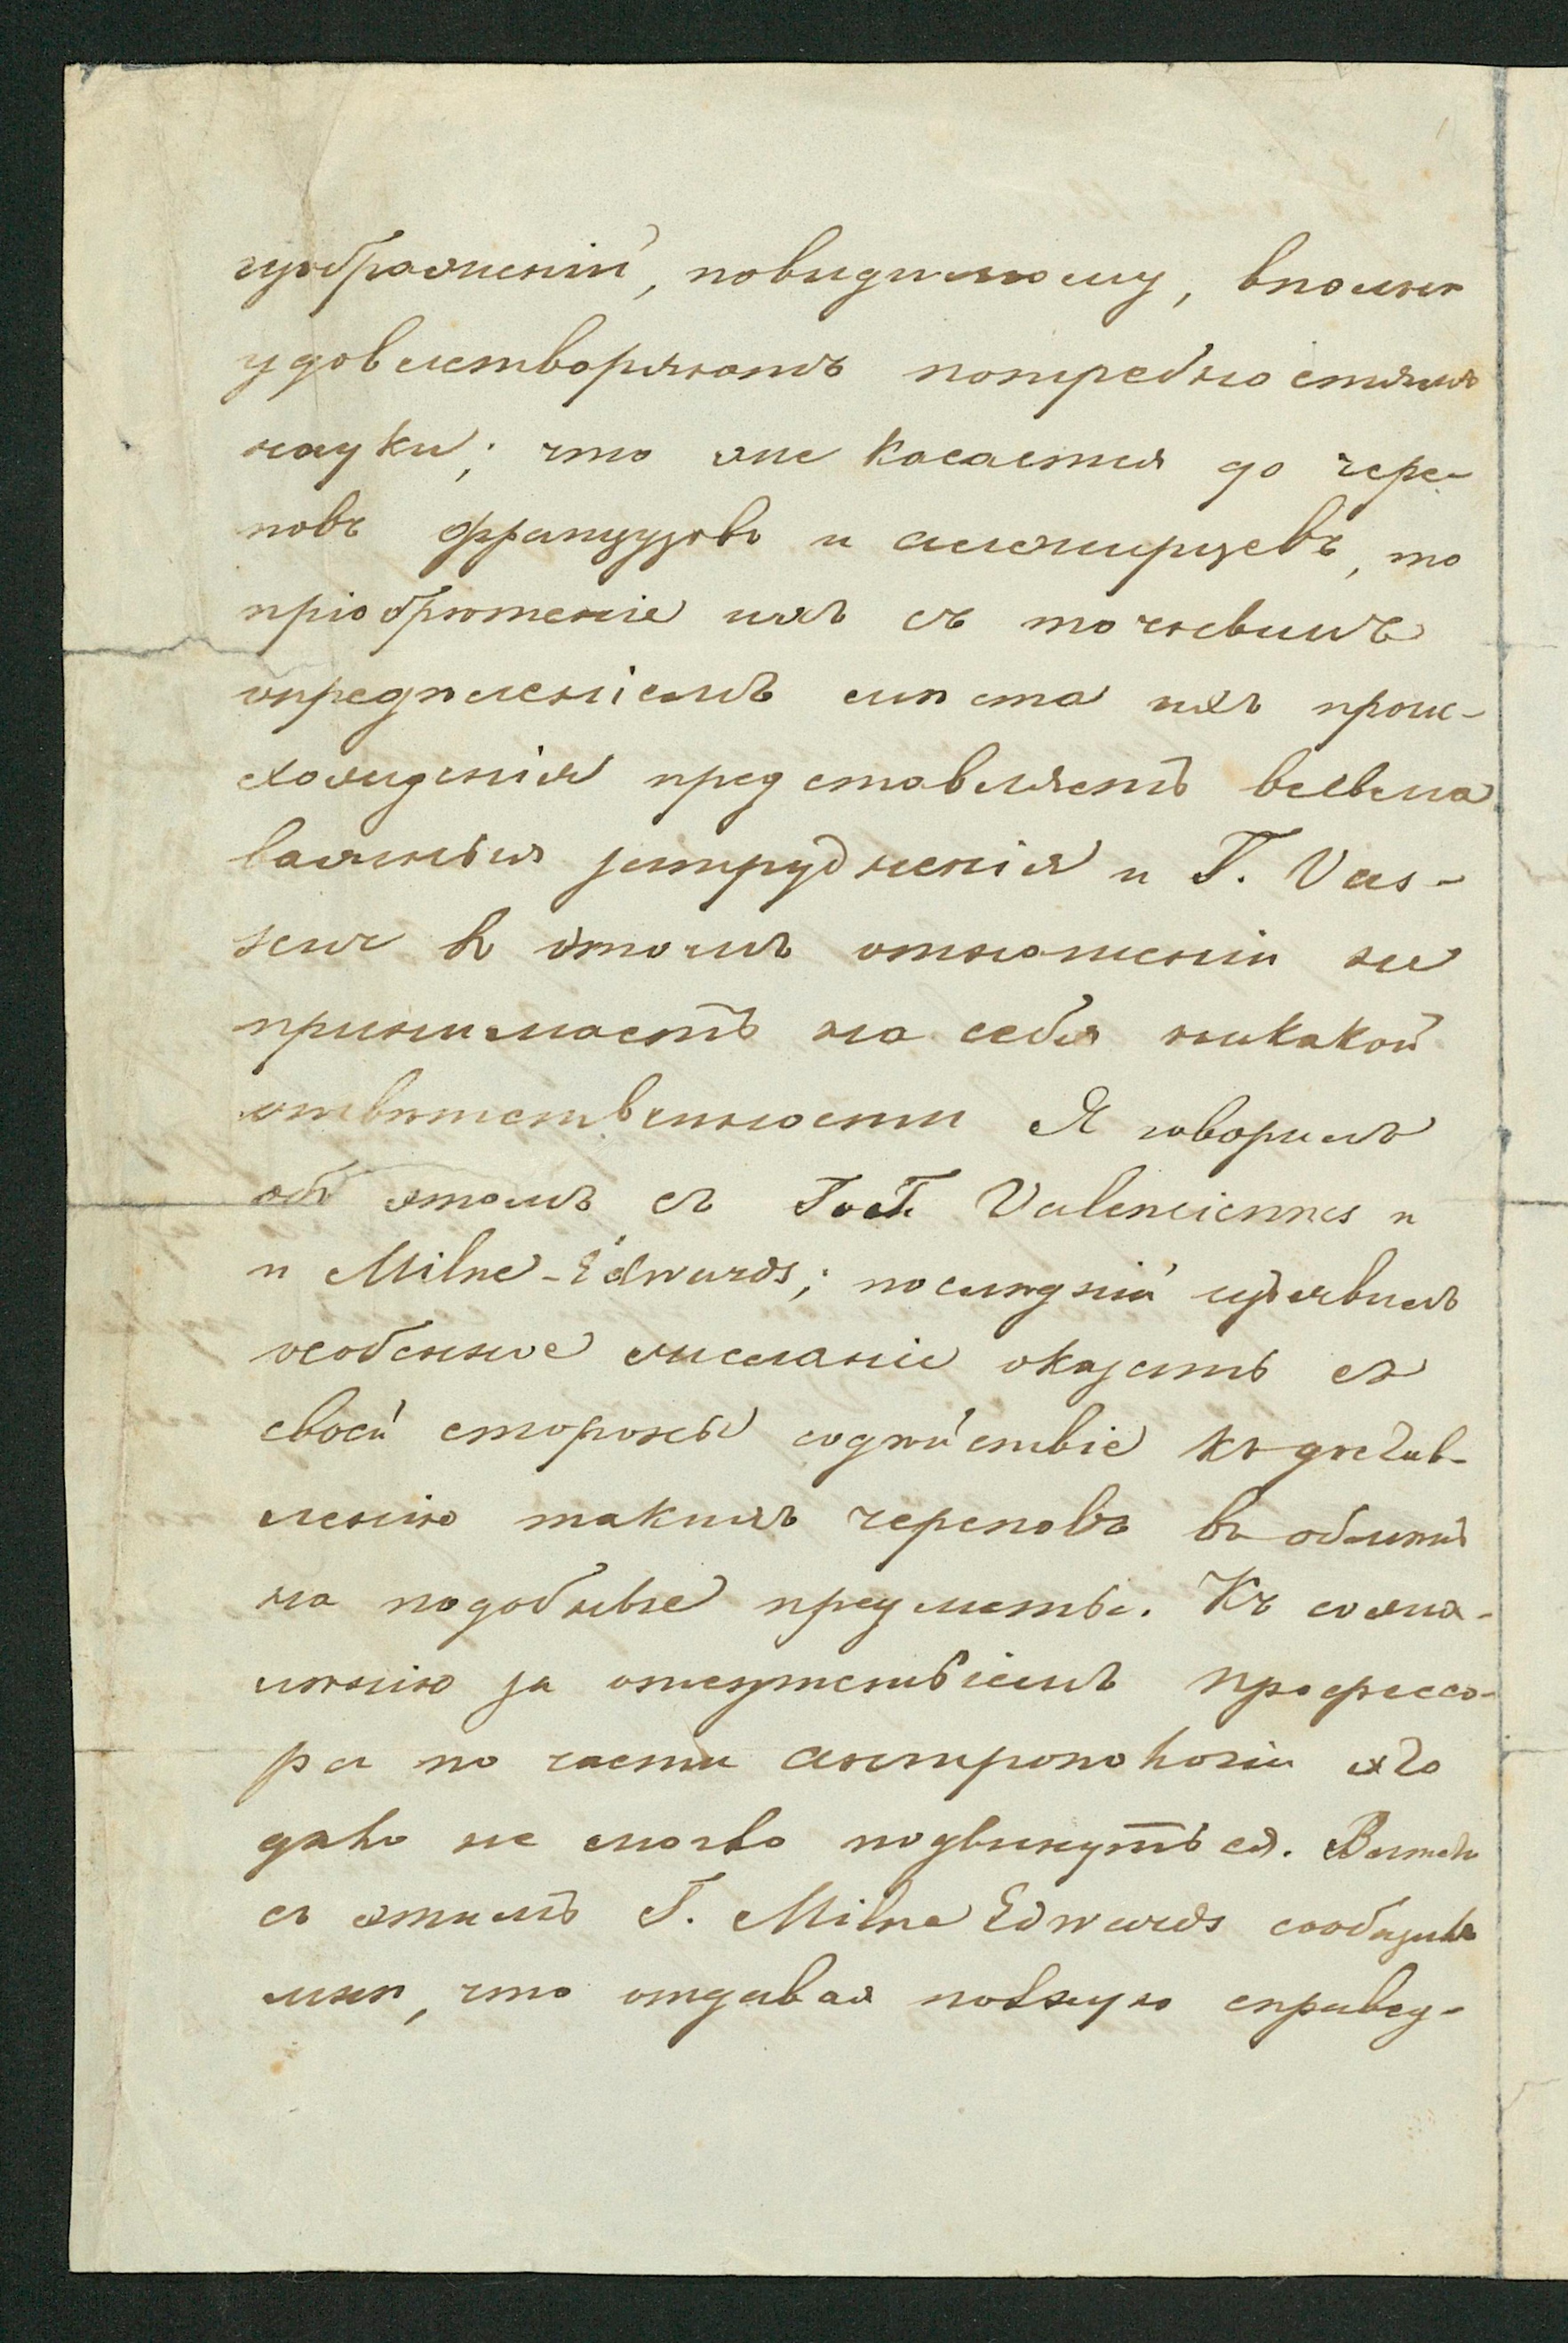 изображеній, повидимому, вполнѣ
удовлетворяютъ потребностямъ
науки; что же касается до чере-
повъ французовъ и алжирцевъ, то
пріобрѣтеніе ихъ съ точнымъ
опредѣленіемъ мѣста ихъ проис-
хожденія представляетъ весьма
важныя затрудненія и Г. Vas-
seur въ этомъ отношеніи не
принимаетъ на себя никакой
отвѣтственности Я говорилъ
объ этомъ съ Гос Valenciennes и
и Milne-Edwards; послѣдній изъявилъ
особенное желаніе оказать съ
своей стороны содѣйствіе къ достав-
ленію такихъ череповъ въ обмѣнъ
на подобные предметы. Къ сожа-
лѣнію за отсутствіемъ профессо-
ра по части антропологіи это
дѣло не могло подвинуться. Вмѣстѣ
съ этимъ Г. Milne Edwards сообщилъ
мнѣ, что отдавая полную справед-